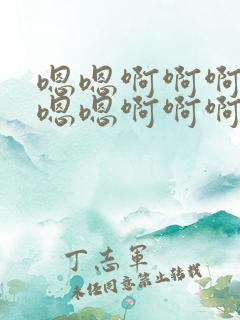 嗯嗯啊啊啊
嗯嗯啊啊啊
丁志軍
未经同意禁止转载